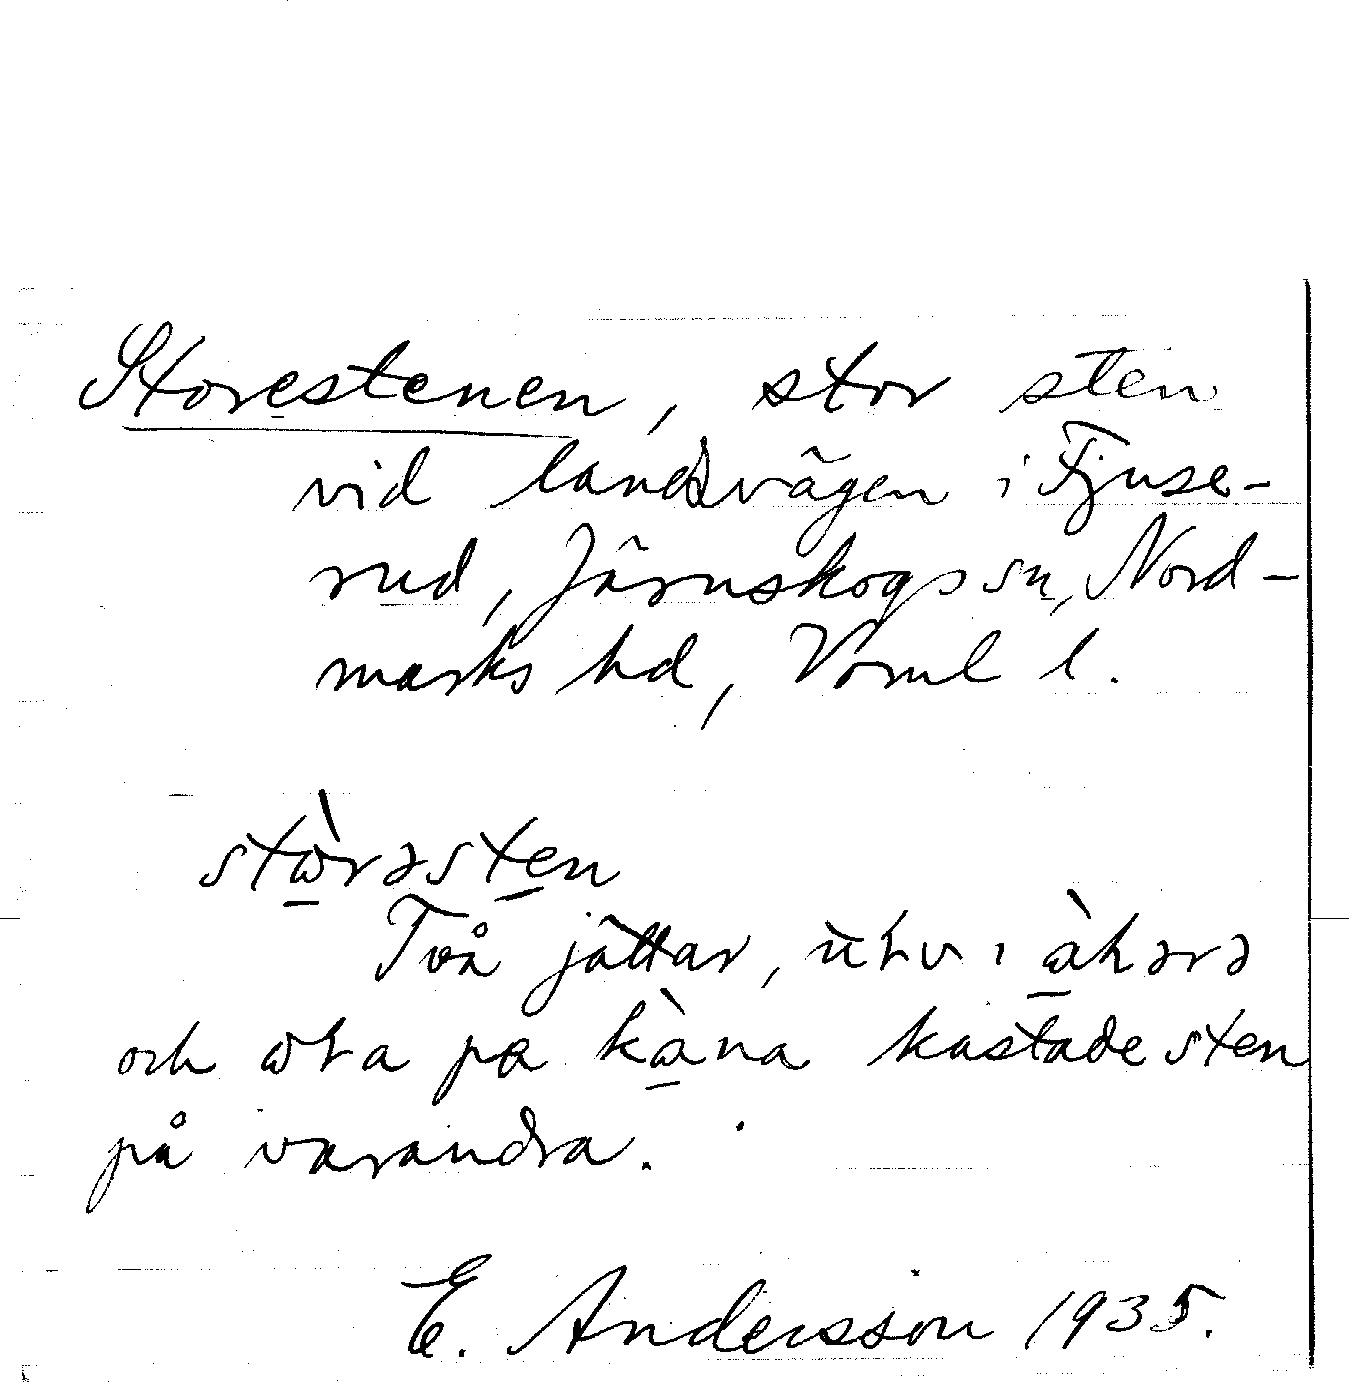 Storestenen, stor sten
vid landsvägen i Fjuse-
rud, Järnskogs sn, Nord-
marks hd, Vörml l.
stɷ̀rəsten
Två jättar, i
och på kastade sten
på varandra.
E. Andersson 1935.